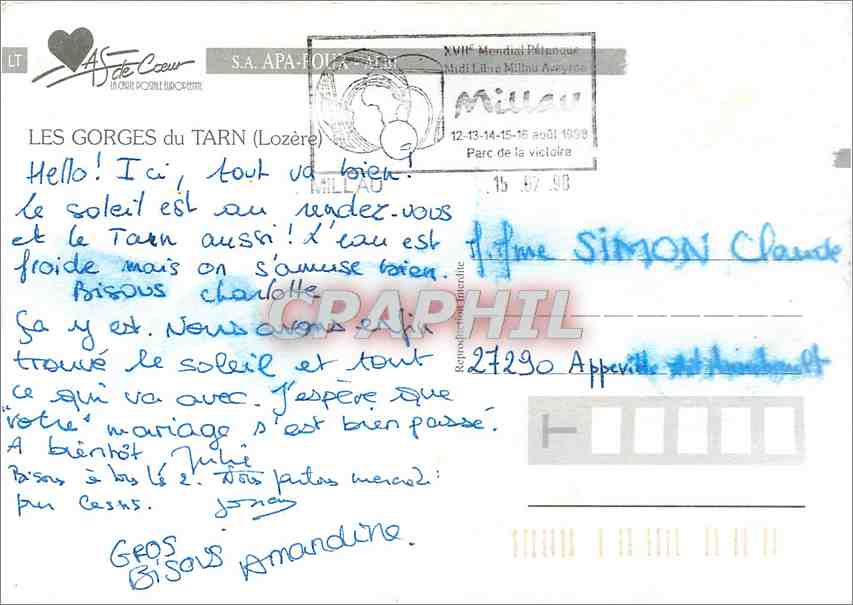 LT
AS de Coeur
LA CARTE POSTALE EUROPEENNE
S.A. APA-POUX - ALBI
XVIIe Mondial Pétanque
Midi Libre Millau Aveyron
Millau
12-13-14-15-16 août 1998
Parc de la victoire
LES GORGES du TARN (Lozère)
MILLAU
15.07.98
Hello! Ici, tout va bien!
Le soleil est au rendez-vous
et le Tarn aussi! L'eau est
froide mais on s'amuse bien.
Bisous Charlotte
Ça y est. Nous avons enfin
trouvé le soleil et tout
ce qui va avec. J'espère que
"votre" mariage s'est bien passé.
A bientôt Julie
Bisous à les 2. Nous partons
pour
Gros
Bisous Amandine.
CPAPHIL
Reproduction Interdite
SIMON Claude
27290 Appeville